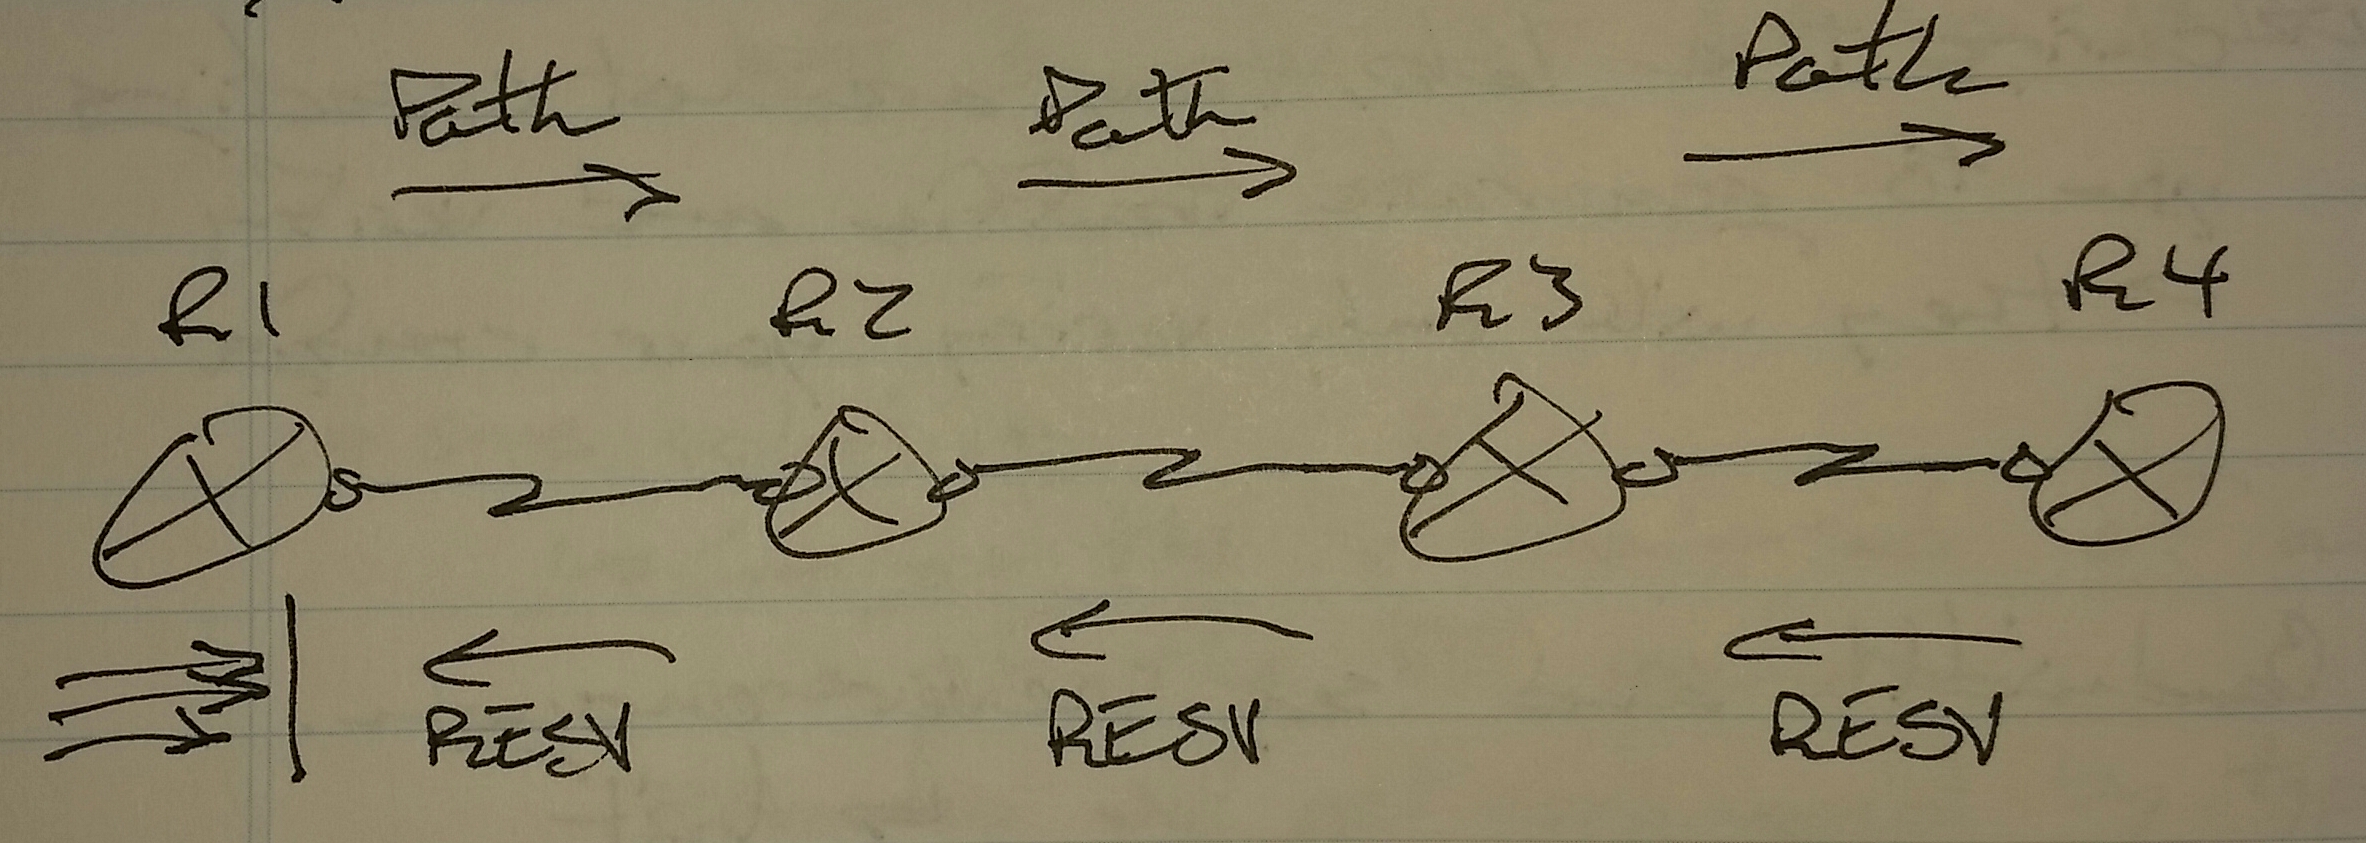 Path Path Path
R1 R2 R3 R4
RESV RESV RESV